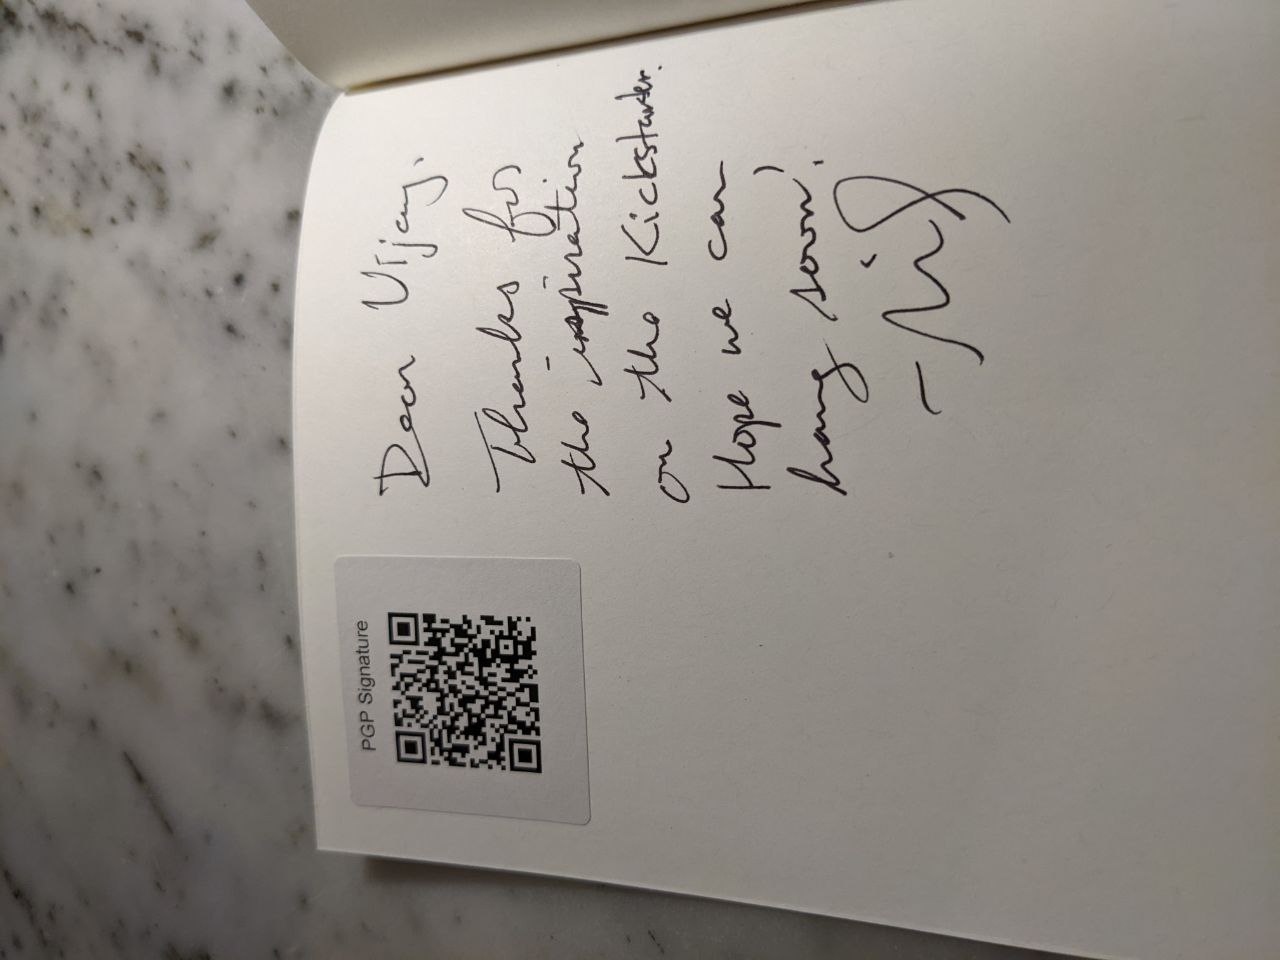 PGP Signature
Dear Vijay,
Thanks for
the inspiration
on the Kickstarter.
Hope we can
hang soon!